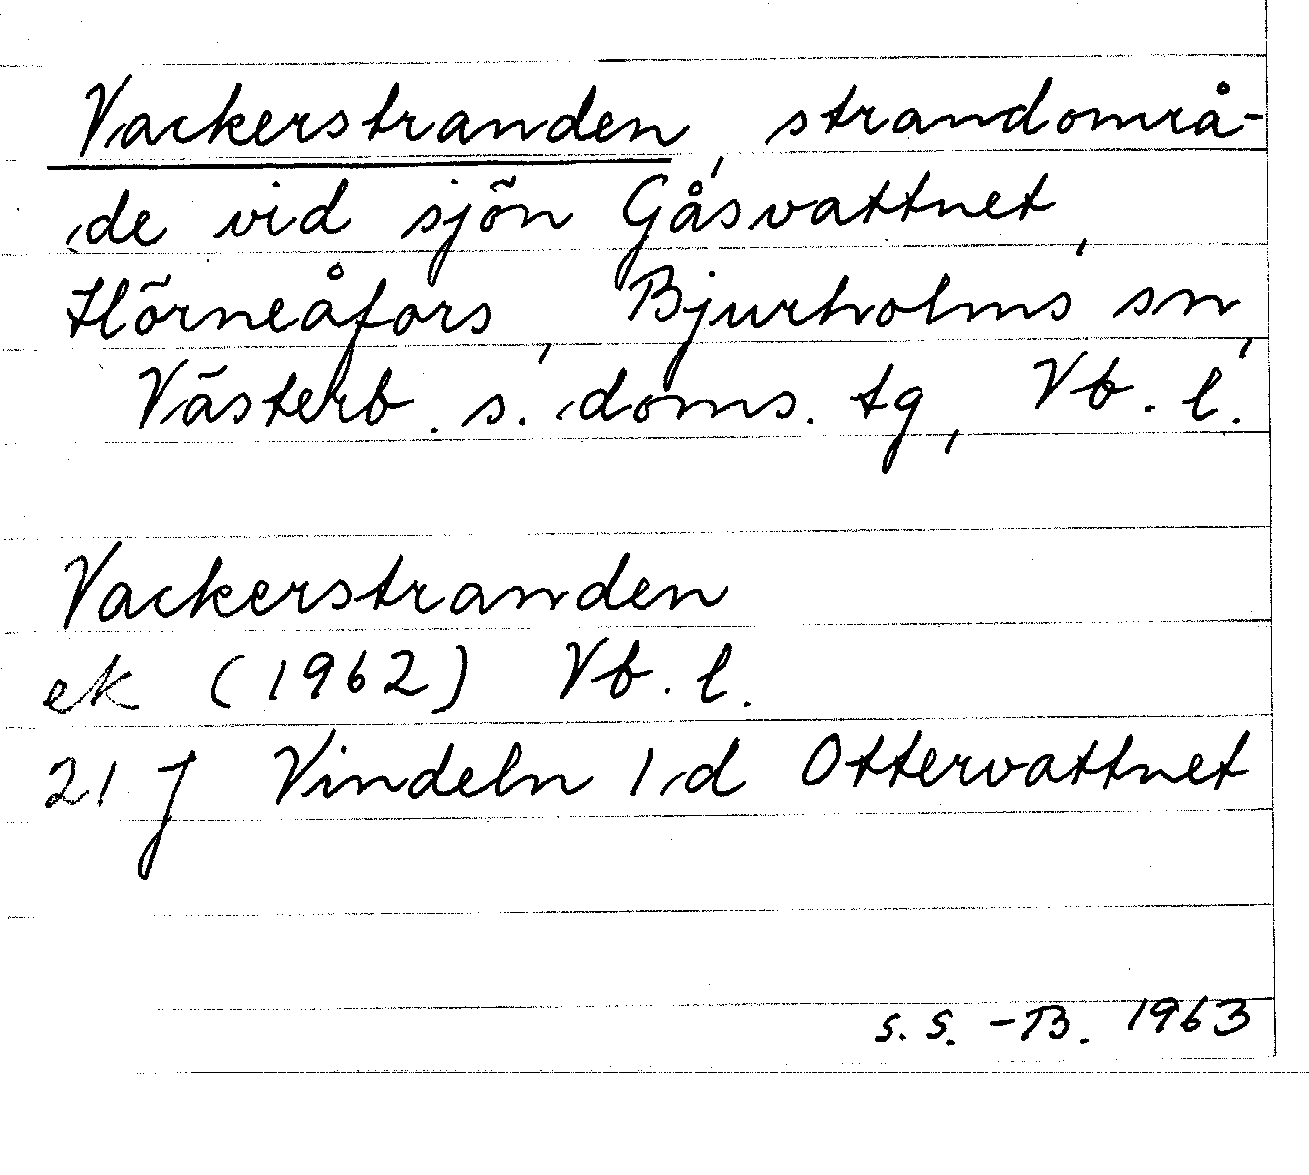 Vackerstranden, strandområ-
de vid sjön Gåsvattnet,
Hörneåfors, Bjurholms sn,
Västerb. s. doms. tg, Vb. l.
Vackerstranden
ek (1962) Vb. l.
21 J Vindeln 1 d Ottervattnet
S. S. -B. 1963